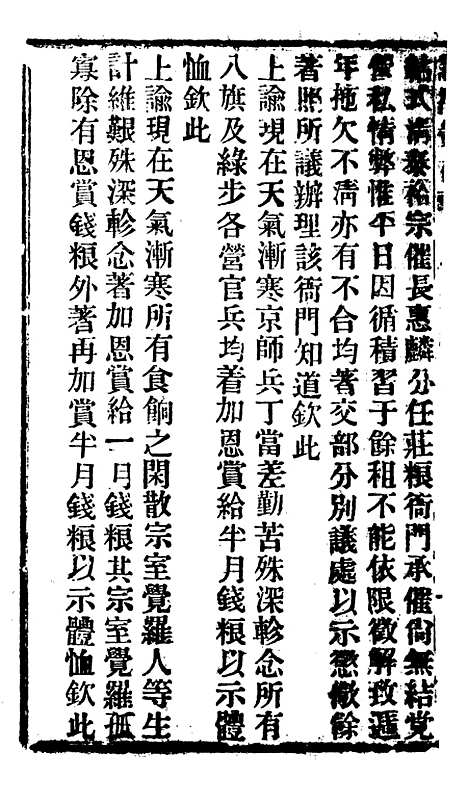 帖式清泰裕宗催長惠麟分任莊粮衙門承催尙無結党
私情弊惟平日因循積習于餘租不能依限徵解致遞
年拖欠不淸亦有不合均著交部分別議處以示懲儆餘
著照所議辦理該衙門知道欽此
上諭現在天氣漸寒京師兵丁當差勤苦殊深軫念所有
八旗及綠步各營官兵均着加恩賞給半月錢粮以示體
恤欽此
上諭現在天氣漸寒所有食餉之閑散宗室覺羅人等生
計維艱殊深軫念著加恩賞給一月錢粮其宗室覺羅孤
寡除有恩賞錢粮外著再加賞半月錢粮以示體恤欽此